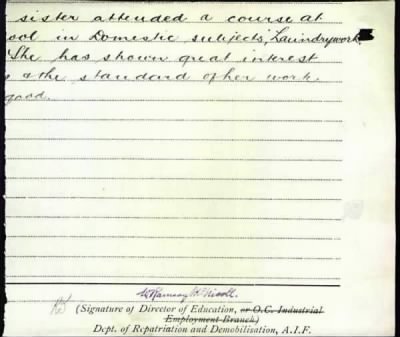 sister attended a course at
ool in Domestic subjects, Laundrywork,
She has shown great interest
& the standard of her work
good.
(Signature of Director of Education, or O.C. Industrial
Employment Branch)
Dept. of Repatriation and Demobilisation, A.I.F.